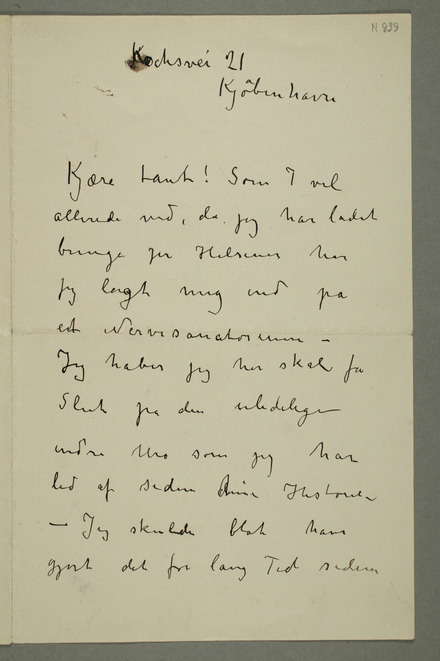 N 839
Kochsvei 21
Kjøbenhavn
Kjære tante! Som I vel
allerede ved, da jeg har ladet
bringe jer Hilsener har
jeg lagt mig ind på
et Nervesanatorium –
Jeg håber jeg her skal få
Slut på den ulidelige
indre Uro som jeg har
lid af siden Historien
– Jeg skulde blot have
gjort det for lang Tid siden